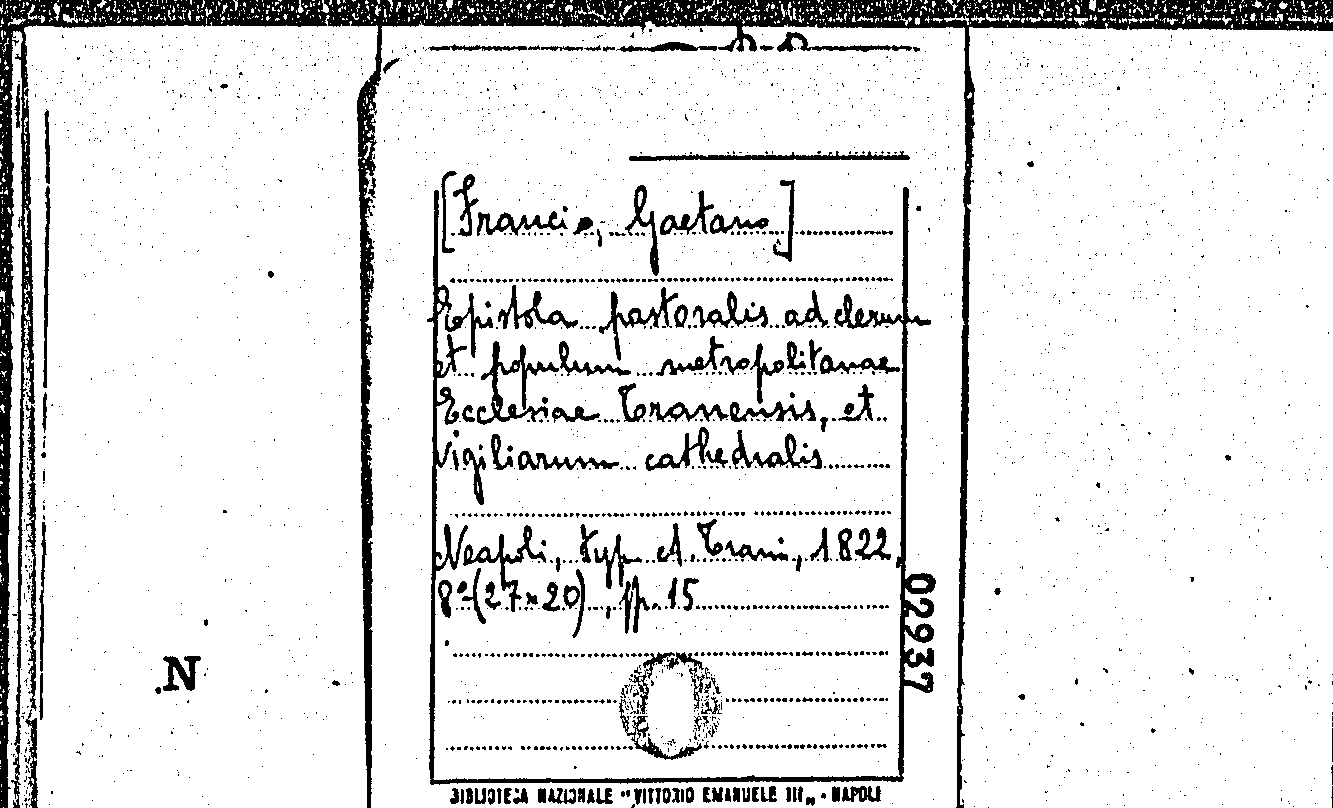 [Franci, Gaetano]
Epistola pastoralis ad clerum
et populum metropolitanae
Ecclesiae Tranensis, et
Vigiliarum cathedralis
Neapoli, typ. A. Trani, 1822,
8º (27×20), pp. 15
02937
N
BIBLIOTECA NAZIONALE "VITTORIO EMANUELE III" - NAPOLI